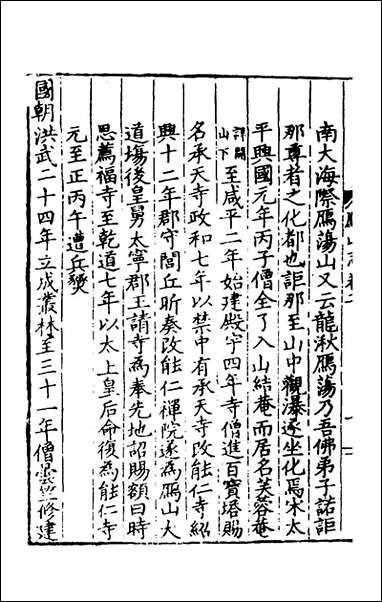 南大海際鴈蕩山又云龍湫鴈蕩乃吾佛弟子諾詎
那尊者之化都也詎那至山中觀瀑遂坐化焉宋太
平興國元年丙子僧全了入山結菴而居名芙蓉菴
詳開山下至咸平二年始建殿宇四年寺僧進百寶塔賜
名承天寺政和七年以禁中有承天寺改能仁寺紹
興十二年郡守閭丘昕奏改能仁禪院遂為鴈山大
道場後皇舅太寧郡王請寺為奉先地詔賜額曰時
思薦福寺至乾道七年以太上皇后命後為能仁寺
元至正丙午遭兵燹
國朝洪武二十四年立成叢林至三十一年僧曇竺修建